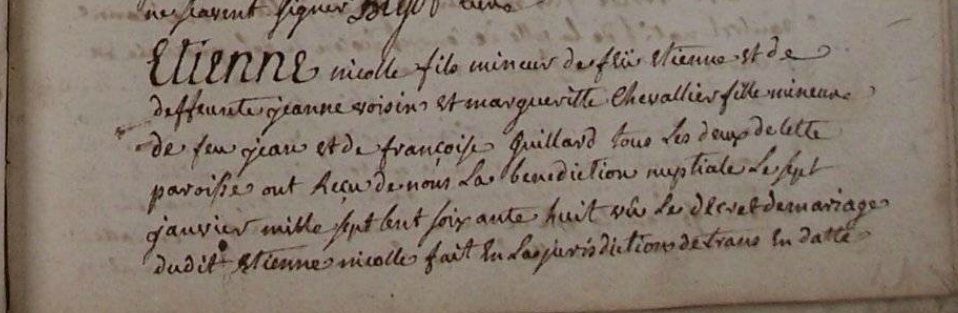 ne scavent signer
Etienne nicolle fils mineur de feü etienne et de
deffeunte jeanne voisin et margueritte Chevallier fille mineure
de feu jean et de françoise Quillard tous les deux de cette
paroisse ont Reçu de nous La benediction nuptiale Le sept
janvier mille sept cent soixante huit vû Le decret de mariage
dudit etienne nicolle fait En La jurisdiction de trans En datte